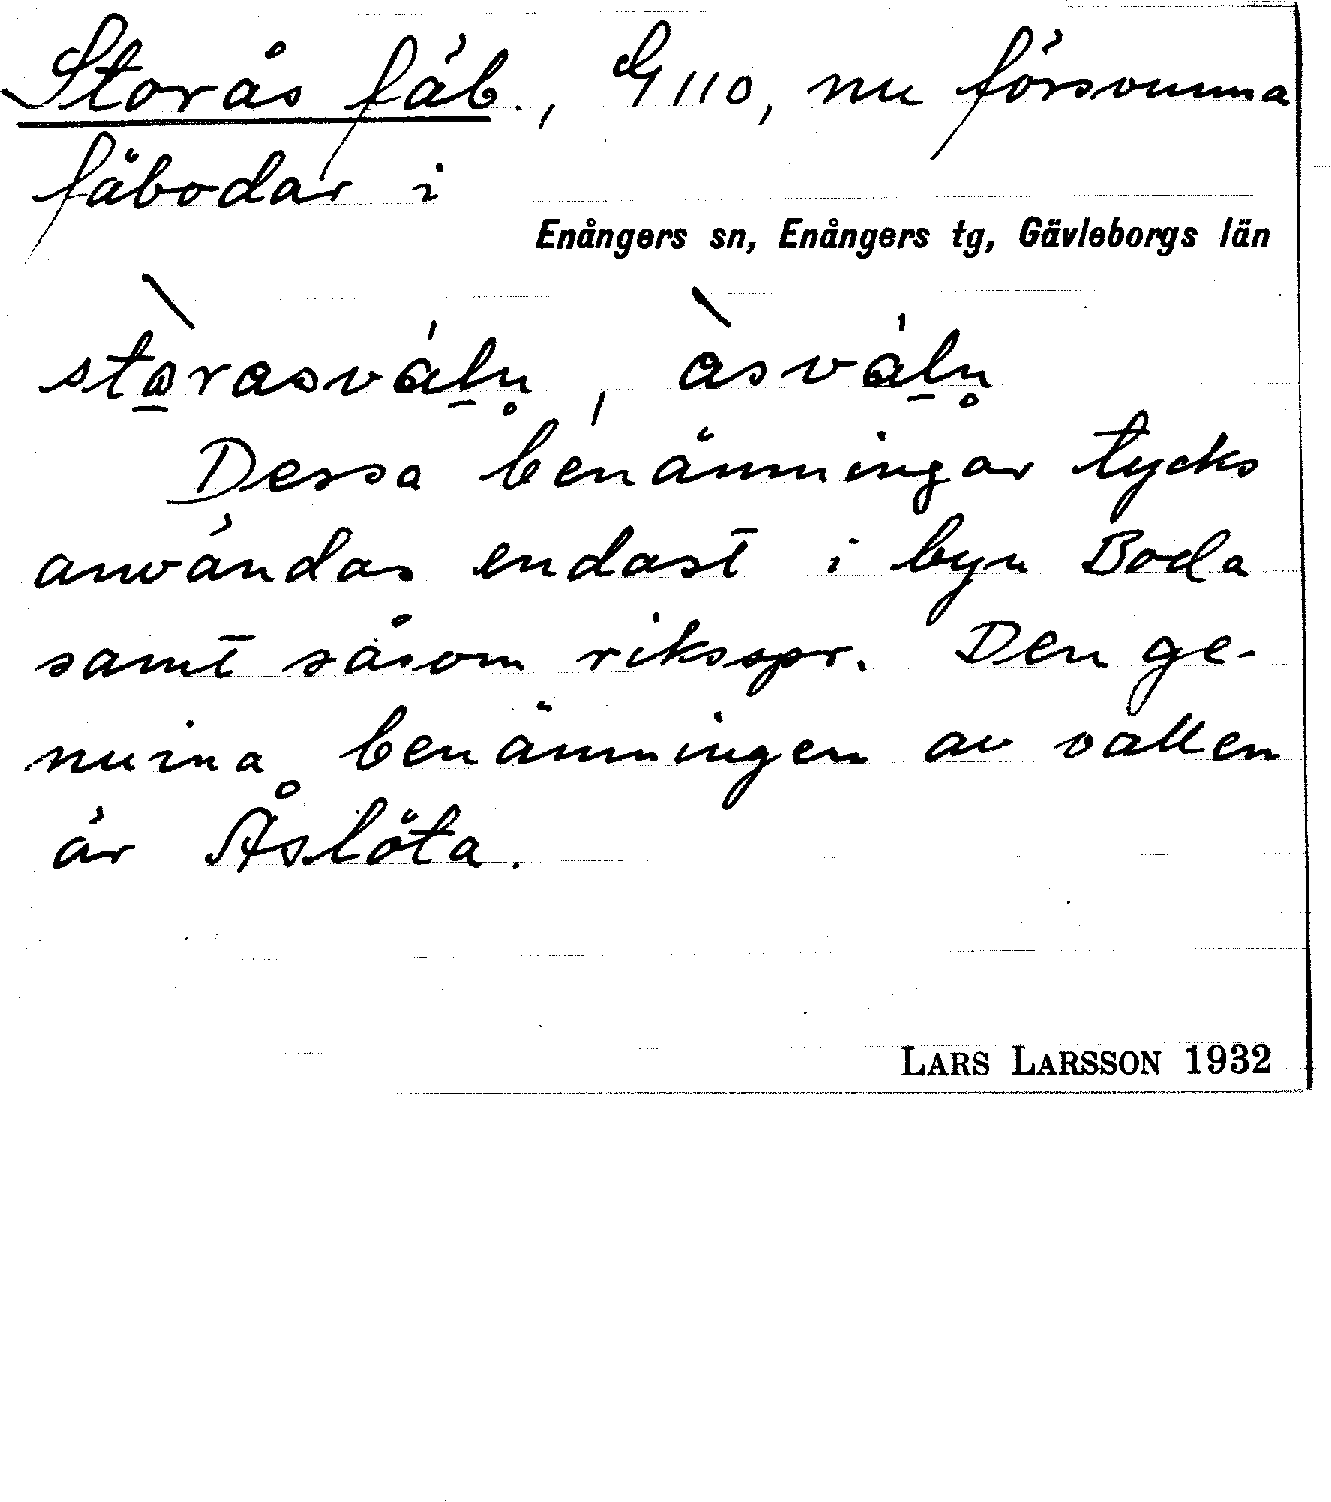 Storås fäb., G 110, nu försvunna
fäbodar i
Enångers sn, Enångers tg, Gävleborgs län
Dessa benämningar tycks
användas endast i byn Boda
samt såsom riksspr. Den ge-
nuina benämningen av vallen
är Åslöta.
LARS LARSSON 1932